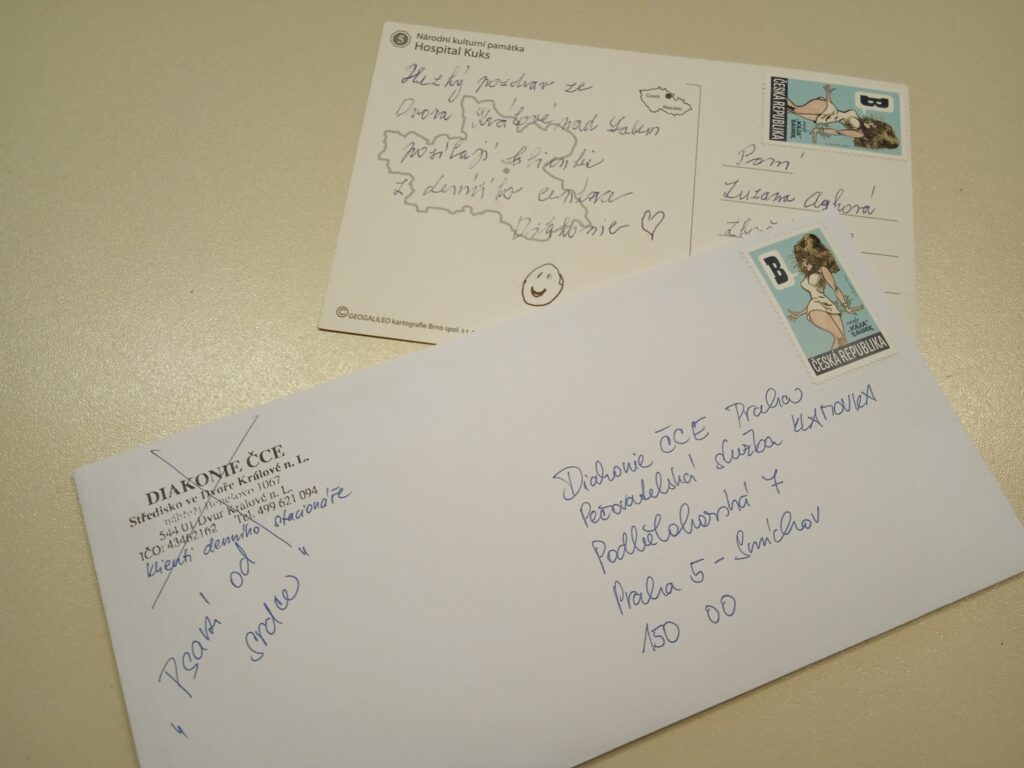 5
Národní kulturní památka
Hospital Kuks
Hezký pozdrav ze
Dvora Králové nad Labem
posílají klientie
z denního centra
Diakonie
Czech
Republic
B
ČESKÁ REPUBLIKA
"KÁJA"
SAUDEK
Paní
Zuzana
© GEOGALILEO kartografie Brno spol. s r.
B
"KÁJA"
SAUDEK
ČESKÁ REPUBLIKA
DIAKONIE ČCE
Středisko ve Dvoře Králové n. L.
nábřeží Benešovo 1067
544 01 Dvůr Králové n. L.
IČO: 43462162 Tel. 499 621 094
klienti denního stacionáře
"Psaní od
srdce"
Diakonie ČCE Praha
Pečovatelská služba KLAMOVKA
Podbělohorská 7
Praha 5 - Smíchov
150 00